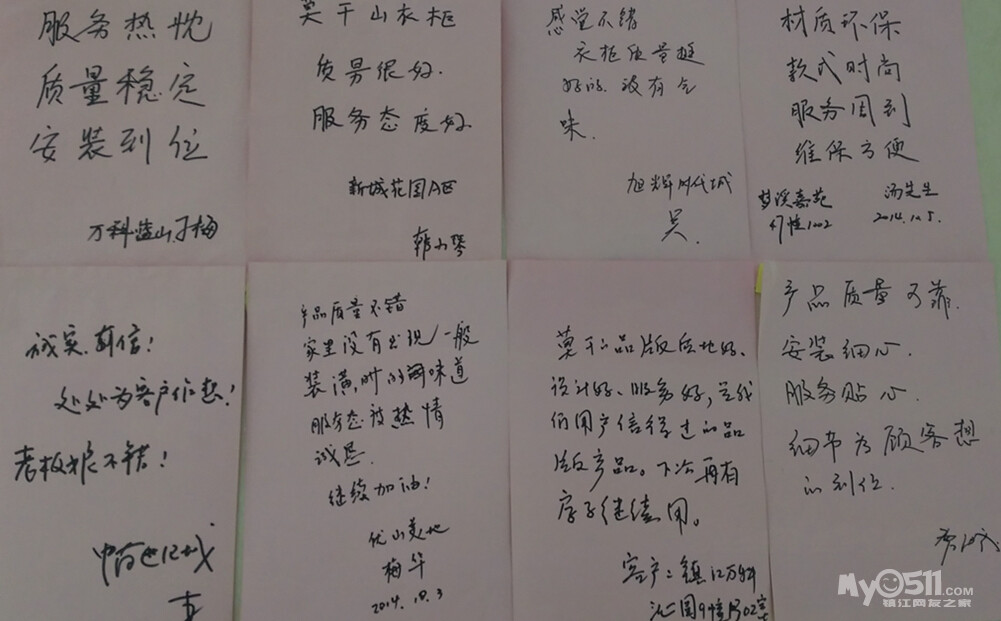 服务热忱
质量稳定
安装到位
万科蓝山于梅
莫干山衣柜
质量很好.
服务态度好
新城花园A区
韩小琴
感觉不错
衣柜质量挺
好的.没有气
味.
旭辉时代城
吴.
材质环保
款式时尚
服务周到
维保方便
梦溪嘉苑 汤先生
幢1002 2014.10.5.
诚实.守信!
处处为客户作想!
老板娘不错!
中南世纪城
产品质量不错
家里没有出现一般
装潢时的闻味道
服务态度热情
诚恳.
继续加油!
优山美地
梅华
2014.10.3
莫干山品版质地好、
设计好、服务好,是我
们用户信得过的品
版产品。下次再有
房子继续用。
客户:镇江万科
产品质量可靠.
安装细心.
服务贴心.
细节为顾客想
的到位.
My0511.COM
镇江网友之家